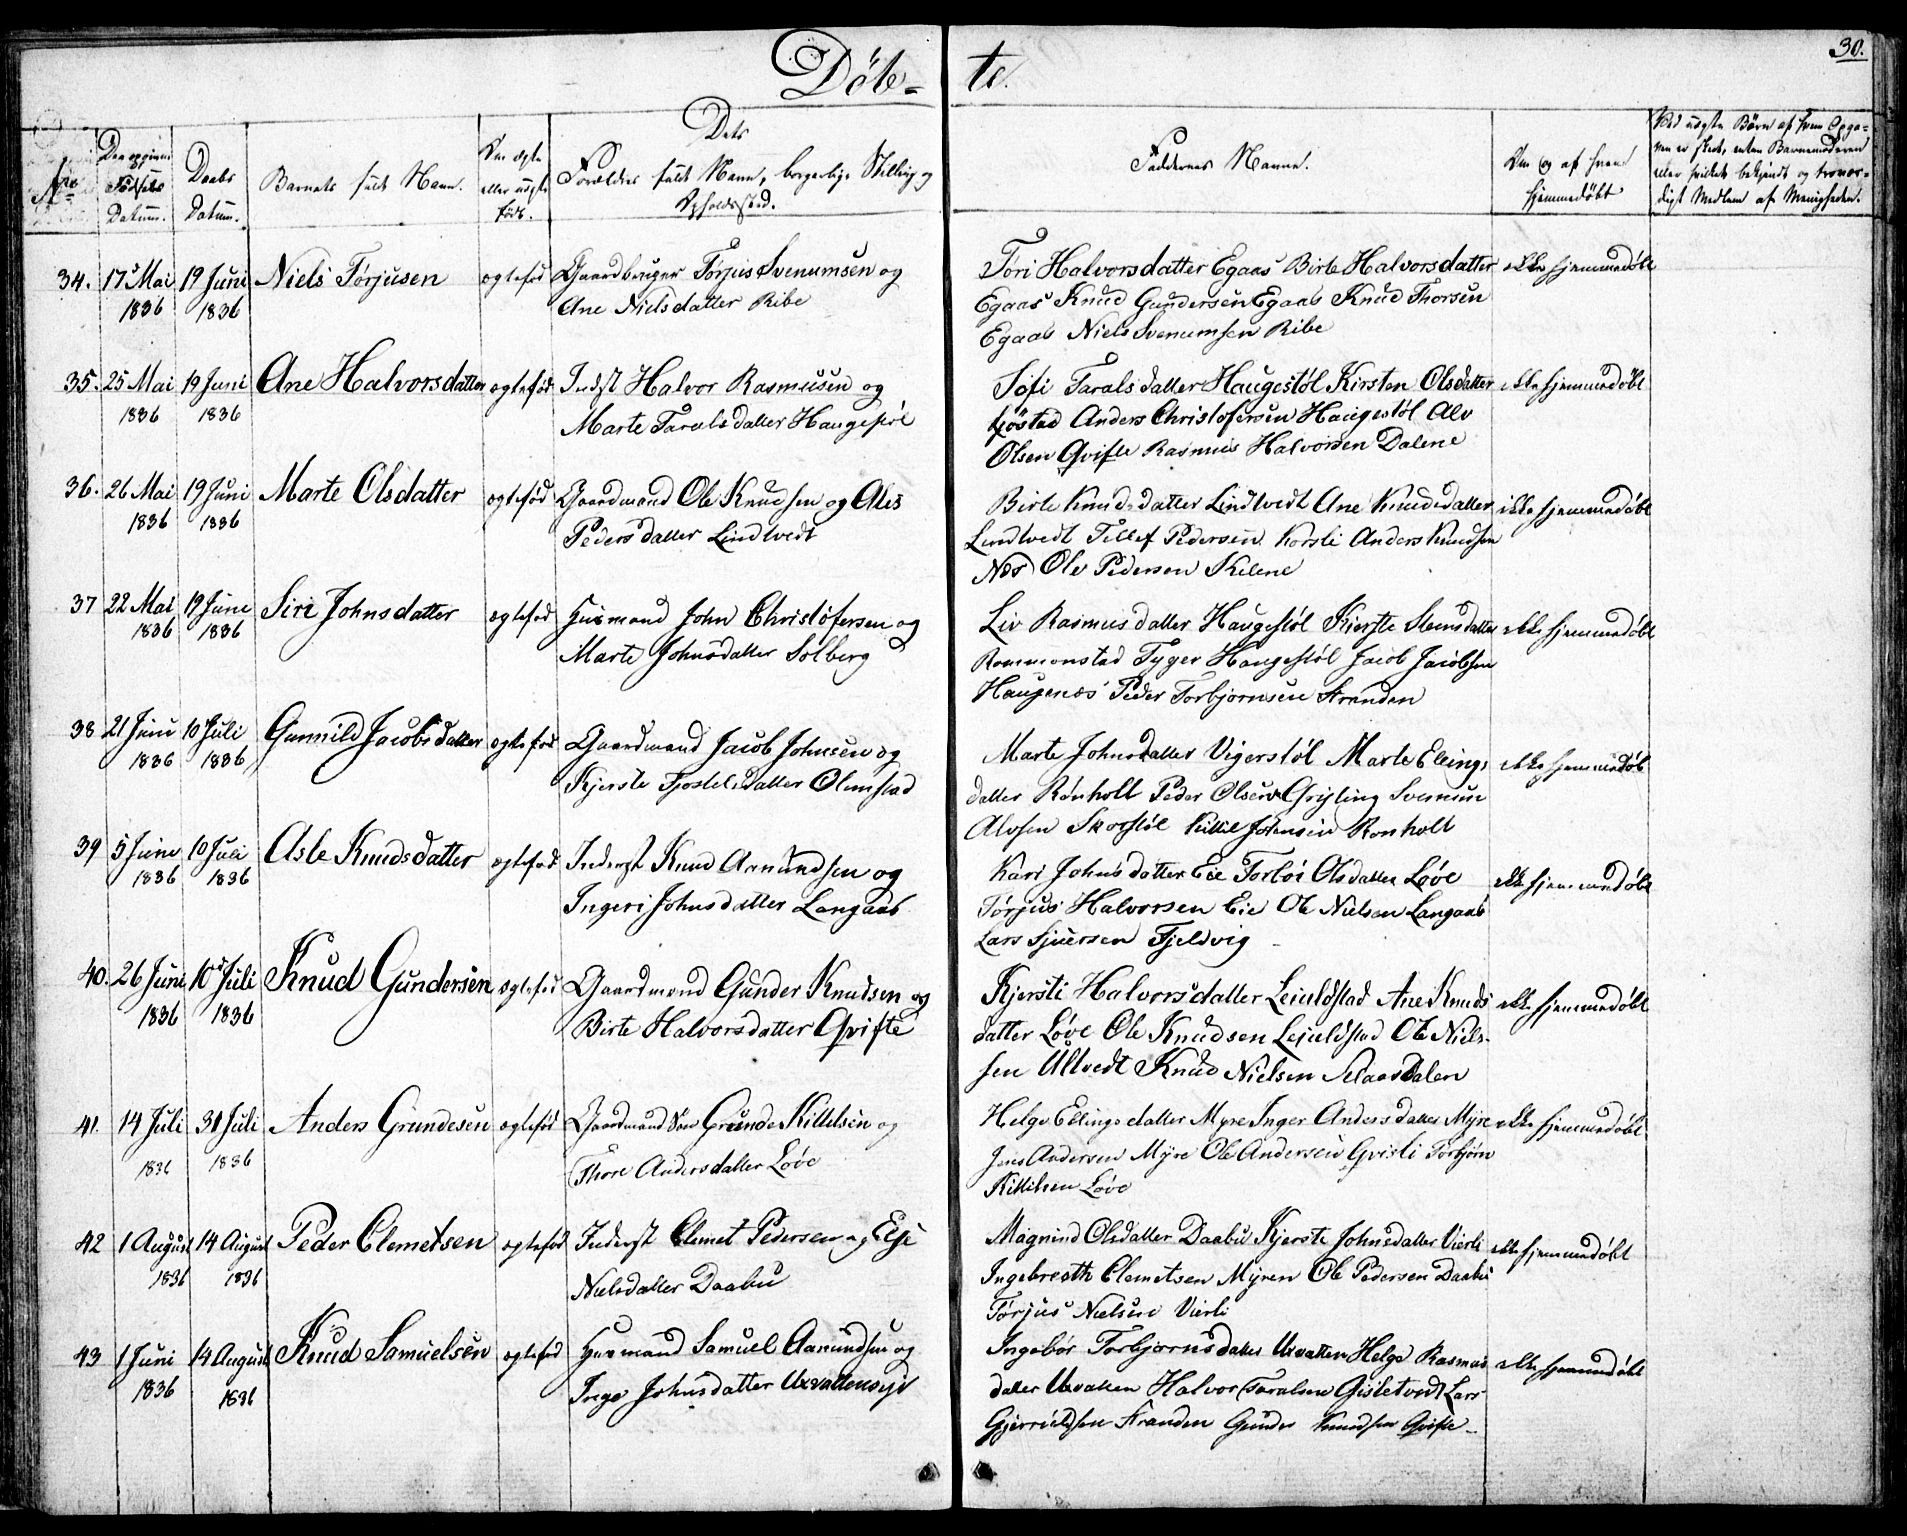 Døb- te.
30.
No
Den opgivne Fødsels Datum.
Daabs Datum.
Barnets fulde Navn.
Om ægte eller uægte født.
Dets Forældres fulde Navn, borgerlige Stilling og Opholdssted.
Faddernes Navne.
Om og af hvem hjemmedøbt
Ved uægte Børn af hvem Opgaven er skeet, enten Barnemoderen eller hvilket bekjendt og troværdigt Medlem af Menigheden.
34. 17 Mai 19 Juni Niels Torjusen ægtefød Gaardbruger Torjus Svenumsen og
1836 1836 Ane Nielsdatter Ribe
Tori Halvorsdatter Egaas Birte Halvorsdatter ikke hjemmedøbt
Egaas Knud Gundersen Egaas Knud Thorsen
Egaas Niels Svenumsen Ribe
35. 25 Mai 19 Juni Ane Halvorsdatter ægtefød Inderst Halvor Rasmusen og
1836 1836 Marte Taralsdatter Haugestøl
Sofi Taralsdatter Haugestøl Kirsten Olsdatter ikke hjemmedøbt
Anders Christofersen Haugestøl Alv
Olsen Qvifte Rasmus Halvorsen Dalene
36. 26 Mai 19 Juni Marte Olsdatter ægtefød Gaardmand Ole Knudsen og Ales
1836 1836 Pedersdatter Lindtvedt
Birte Knudsdatter Lindtvedt Ane Knudsdatter ikke hjemmedøbt
Lindtvedt Tellef Pedersen Korsli Anders Knudsen
Næs Ole Pedersen Kilene
37 22 Mai 19 Juni Siri Johnsdatter ægtefød Huusmand John Christofersen og
1836 1836 Marte Johnsdatter Solberg
Liv Rasmusdatter Haugestøl Kierste Steensdatter ikke hjemmedøbt
Rommonstad Tyger Haugestøl Jacob Jacobsen
Haugenæs Peder Torbjornsen Stranden
38 21 Juni 10 Juli Gunnild Jacobsdatter ægtefød Gaardmand Jacob Johnsen og
1836 1836 Kjerste Tjostelsdatter Olmstad
Marte Johnsdatter Vigerstøl Marte Ellings ikke hjemmedøb
datter Rønholt Peder Olsen Grifling Svennum
Alvsen Skorstøl Kittil Johnsen Ronholt
39 5 Juni 10 Juli Asle Knudsdatter ægtefød Inderst Knud Amundsen og
1836 1836 Ingeri Johnsdatter Langaas
Kari Johnsdatter Eie Torboi Olsdatter Løve ikke hjemmedøbt
Torjus Halvorsen Eie Ole Nielsen Langaas
Lars Sjursen Fjeldvig
40. 26 Juni 10 Juli Knud Gundersen ægtefød Gaardmand Gunder Knudsen og
1836 1836 Birte Halvorsdatter Qvifte
Kjersti Halvorsdatter Leiuldstad Ane Knuds ikke hjemmedøbt
datter Løve Ole Knudsen Leiuldstad Ole Niel-
sen Ultvedt Knud Nielsen Staasdalen
41. 14 Juli 31 Juli Anders Grundesen ægtefød Gaardmand Søn Grunde Kittelsen og
1836 1836 Thore Andersdatter Løve
Helge Ellingsdatter Myre Inger Andersdatter Myre ikke hjemmedøbt
Jens Andersen Myre Ole Andersen Torbjørn
Kittilsen Løve
42 1 August 14 August Peder Clemetsen ægtefød Inderst Clemet Pedersen og Else
1836 1836 Nielsdatter Daabu
Magnind Olsdatter Daabu Kjerste Johnsdatter Vierli ikke hjemmedøbt
Ingebreth Clemetsen Myren Ole Pedersen Daabu
Torjus Nielsen Vierli
43 1 Juni 14 August Knud Samuelsen ægtefød Huusmand Samuel Aamundsen og
1836 1836 Inge Johnsdatter Uxvatten
Ingebor Torbjornsdatter Uxvatten Helge Rasmus ikke hjemmedøbt
datter Uxvatten Halvor Taralsen Gisletvedt Lars
Stranden Gunder Knudsen Qvifte